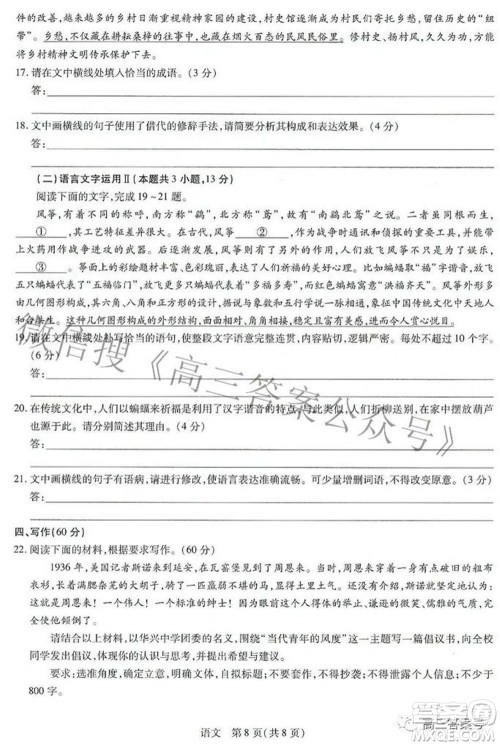 件的改善,越来越多的乡村日渐重视精神家园的建设,村史馆逐渐成为村民们寄托乡愁,留住历史的“纽
带”。乡愁,不仅藏在耕耘桑梓的往事中,也藏在烟火百态的民风民俗里。修村史、扬村风,久久为功,方能为
乡村精神文明传承保护下去。
17. 请在文中横线处填入恰当的成语。(3 分)
答:
18. 文中画横线的句子使用了借代的修辞手法,请简要分析其构成和表达效果。(4 分)
答:
(二)语言文字运用Ⅱ(本题共 3 小题,13 分)
阅读下面的文字,完成 19~21 题。
风筝,有着不同的称呼,南方称“鹞”,北方称“鸢”,故有“南鹞北鸢”之说。二者虽同根,但
①,其工艺特征差异很大。在古代,风筝②,如作为战争时通讯和侦探的重要工具,并能带
上火药用作战争进攻的武器。后逐渐发展成为一种民间工艺和玩具,人们放飞风筝不只是为了娱乐,
③。等面上的彩绘题材丰富、色彩瑰丽,表达了人们的美好愿望,如人们取蝙蝠“福”字的谐音,设计放飞
五只蝙蝠造型的风筝来寓意“五福临门”,设计放飞多只蝙蝠来寓意“多福多寿”,而红色蝙蝠风筝寓意“洪福齐天”。又
由几何图形构成,其六角、八角和五行学说一脉相通,表现出对称、整齐,据说与象征中国传统文化中天地人
和合共生。这种几何图形构成的外形轮廓,充分显现了民间装饰艺术概括、简练和生动性。
19. 请在文中横线处补写恰当的语句,使整段文字语意完整连贯,内容贴切,逻辑严密。每处不超过 10 个字。
(6 分)
答:
20. 在传统文化中,人们以蝙蝠来祈福是利用了汉字谐音的特点。人们折柳送别、在家中摆放葫芦
也源于此。请分别简述其理由。(4 分)
答:
21. 文中画横线的句子有语病,请进行修改,使语言表达准确流畅。可少量增删词语,不得改变原意。(3 分)
答:
四、写作(60 分)
22. 阅读下面的材料,根据要求写作。(60 分)
1936 年,美国记者斯诺来到延安,在瓦窑堡见到了周恩来。当时周恩来身上穿着破旧的粗布
衣衫,长着满腮杂芜的大胡子,骑了一匹嬴弱的马。但当斯诺就近看清了周恩来时,却禁不住发出
了感叹:一个伟人!一个伟大的绅士!他从周恩来坚毅的目光、谦逊的微笑、儒雅的风度中,完
全使他倾倒了。
请结合以上材料,以华兴中学团委的名义,围绕“当代青年的风度”这一主题写一篇倡议书,向全校
同学发出倡议,体现你的认识与思考,并提出希望与建议。
要求:选准角度,确定立意,自拟标题;不要套作,不得抄袭;不得泄露个人信息;不少于
800 字。
语文 第 8 页(共 8 页)
微信搜《高三答案公众号》
高三答案号
答案圈
MXQE.COM